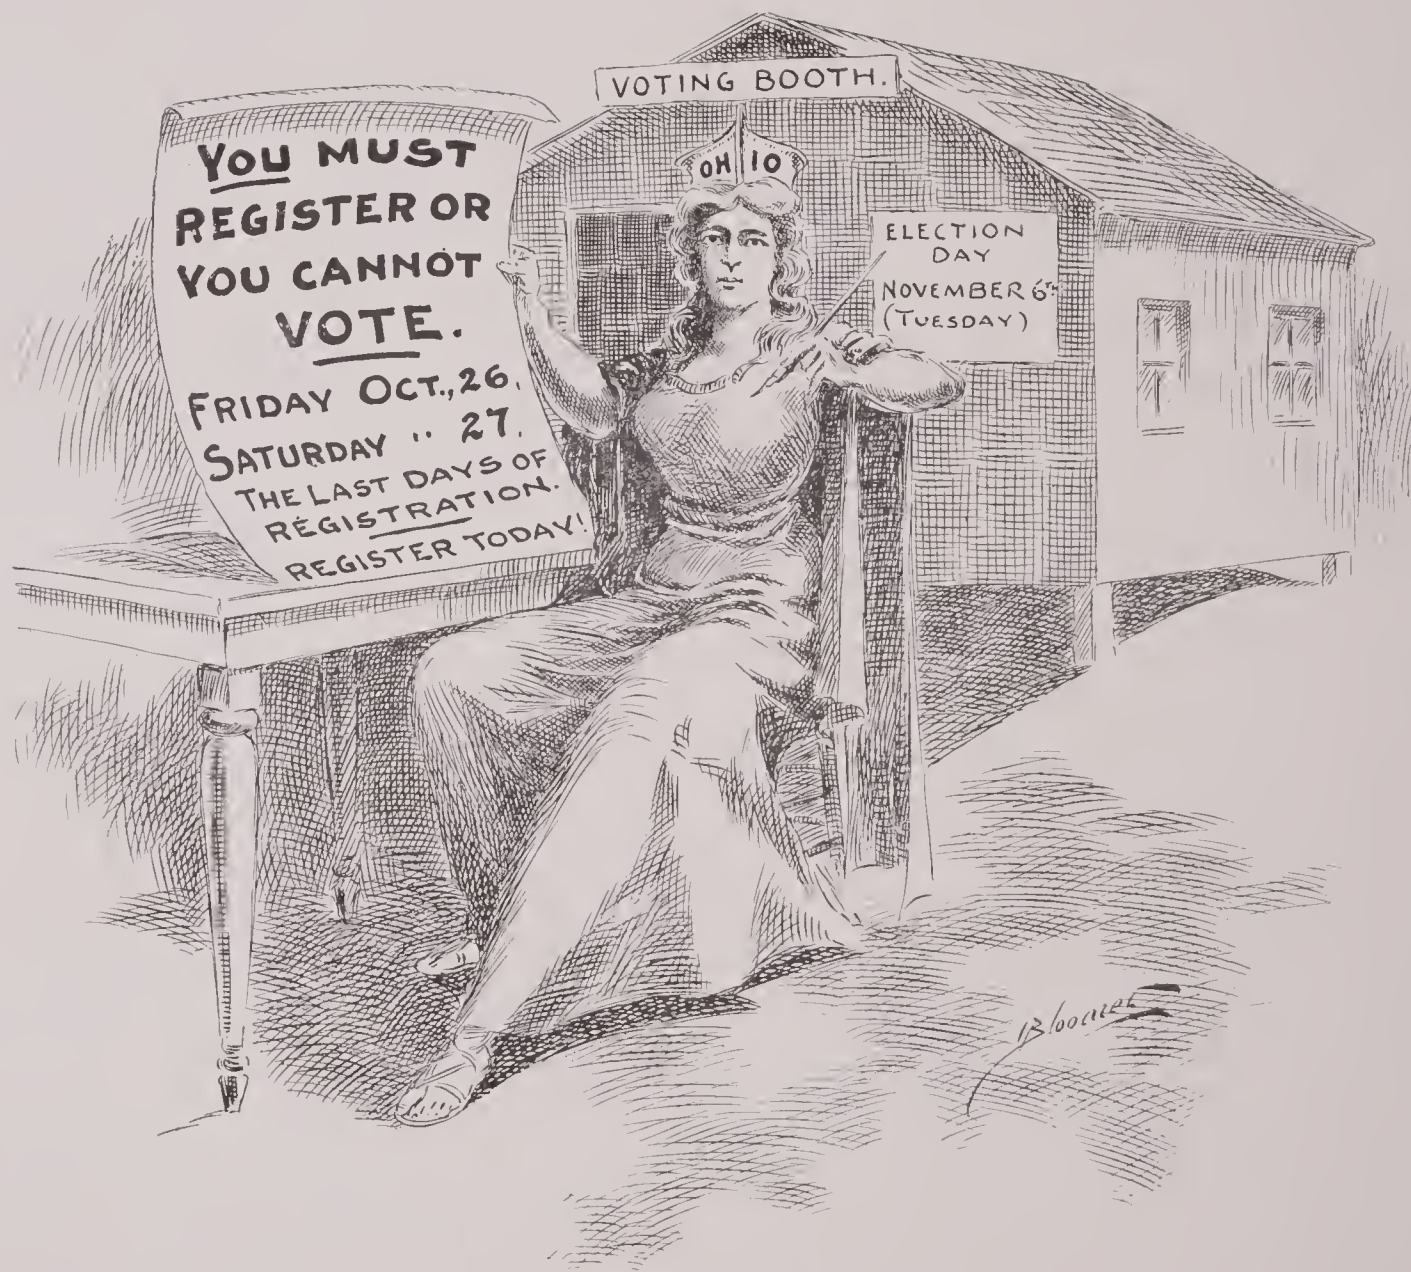 VOTING BOOTH.
YOU MUST
REGISTER OR
YOU CANNOT
VOTE.
FRIDAY OCT., 26.
SATURDAY " 27.
THE LAST DAYS OF
REGISTRATION.
REGISTER TODAY!
OHIO
ELECTION
DAY
NOVEMBER 6TH
(TUESDAY)